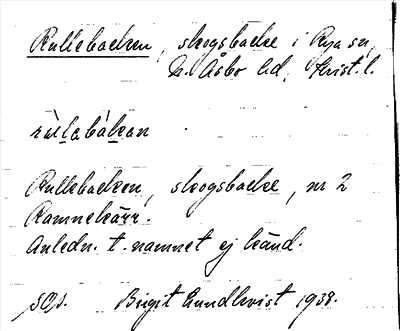 Rullebacken, skogsbacke i Rya sn,
N. Åsbo hd, Krist. l.
rùlabàkan
Rullebacken, skogsbacke, nr 2
Ramnekärr.
Anledn. t. namnet ej känd.
Birgit Lundkvist 1938.